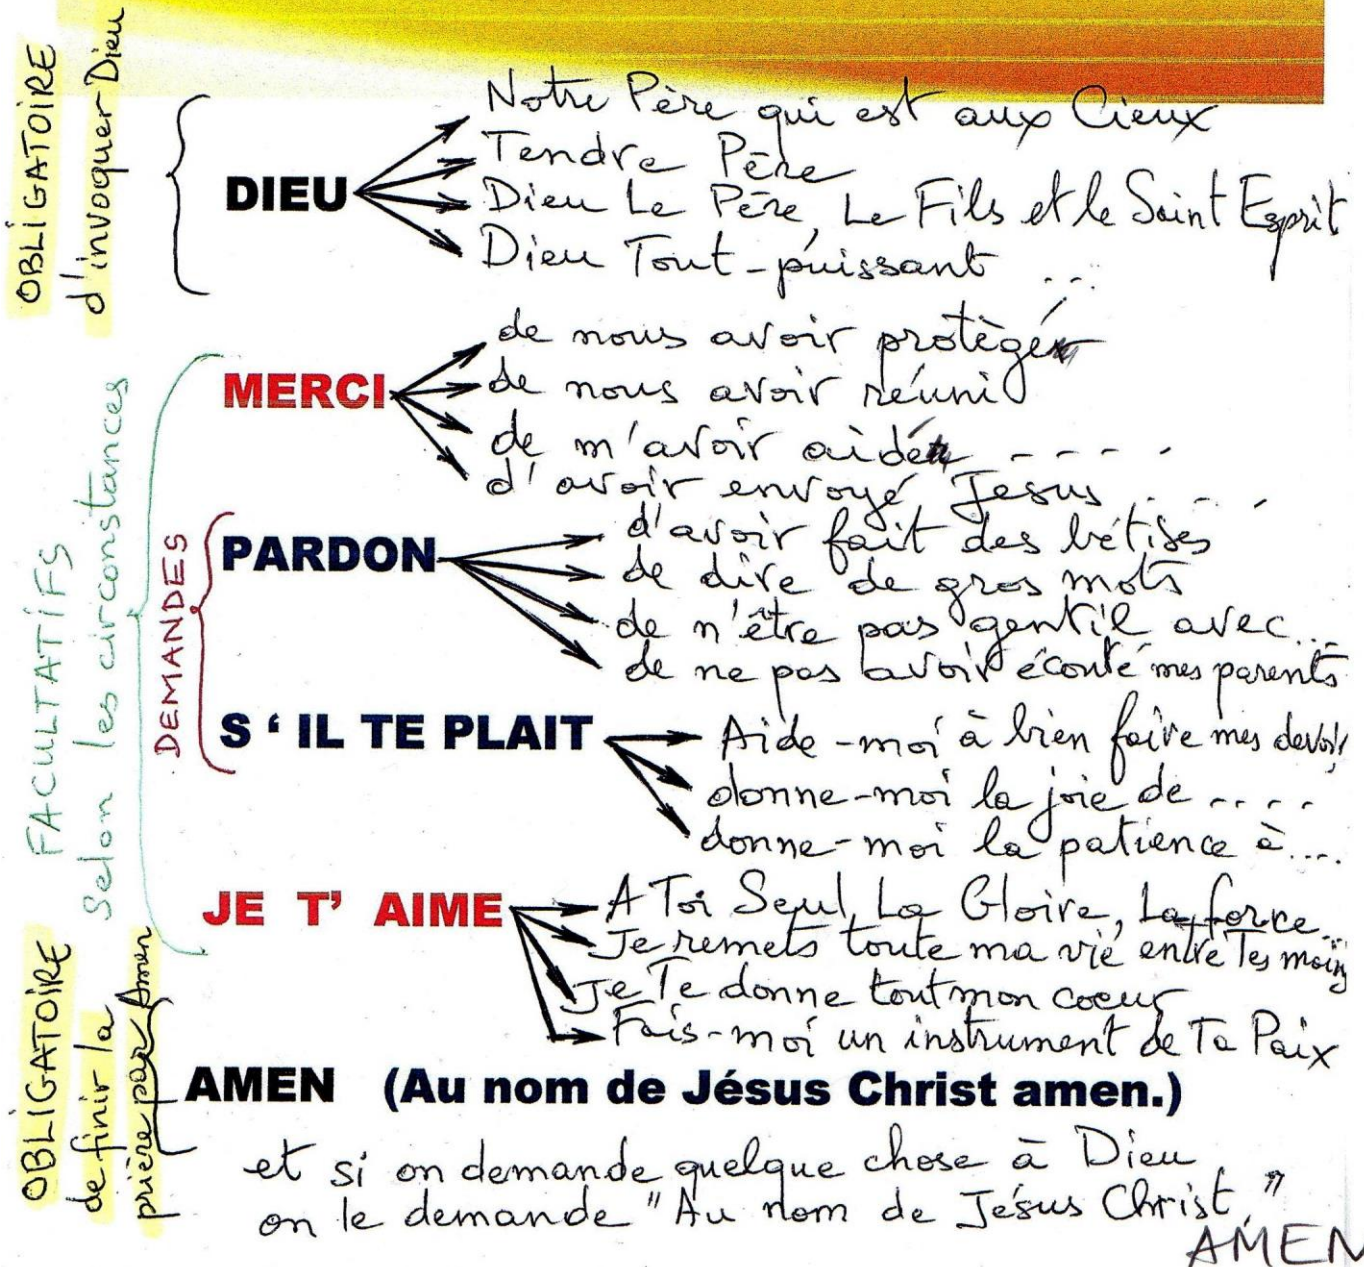 OBLIGATOIRE
d'invoquer Dieu
DIEU
Notre Père qui est aux Cieux
Tendre Père
Dieu Le Père, Le Fils et le Saint Esprit
Dieu Tout-puissant ...
FACULTATIFS
Selon les circonstances
MERCI
de nous avoir protégé
de nous avoir réuni
de m'avoir aidé - - - -
d'avoir envoyé Jesus . . .
DEMANDES
PARDON
d'avoir fait des bétises
de dire de gros mots
de n'être pas gentil avec...
de ne pas avoir écouté mes parents
S ‘ IL TE PLAIT
Aide-moi à bien faire mes devoirs
donne-moi la joie de ....
donne-moi la patience à....
JE T’ AIME
A Toi Seul, La Gloire, La force...
Je remets toute ma vie entre Tes mains
Je Te donne tout mon coeur
Fais-moi un instrument de Ta Paix
OBLIGATOIRE
de finir la
prière par Amen
AMEN (Au nom de Jésus Christ amen.)
et si on demande quelque chose à Dieu
on le demande "Au nom de Jésus Christ"
AMEN